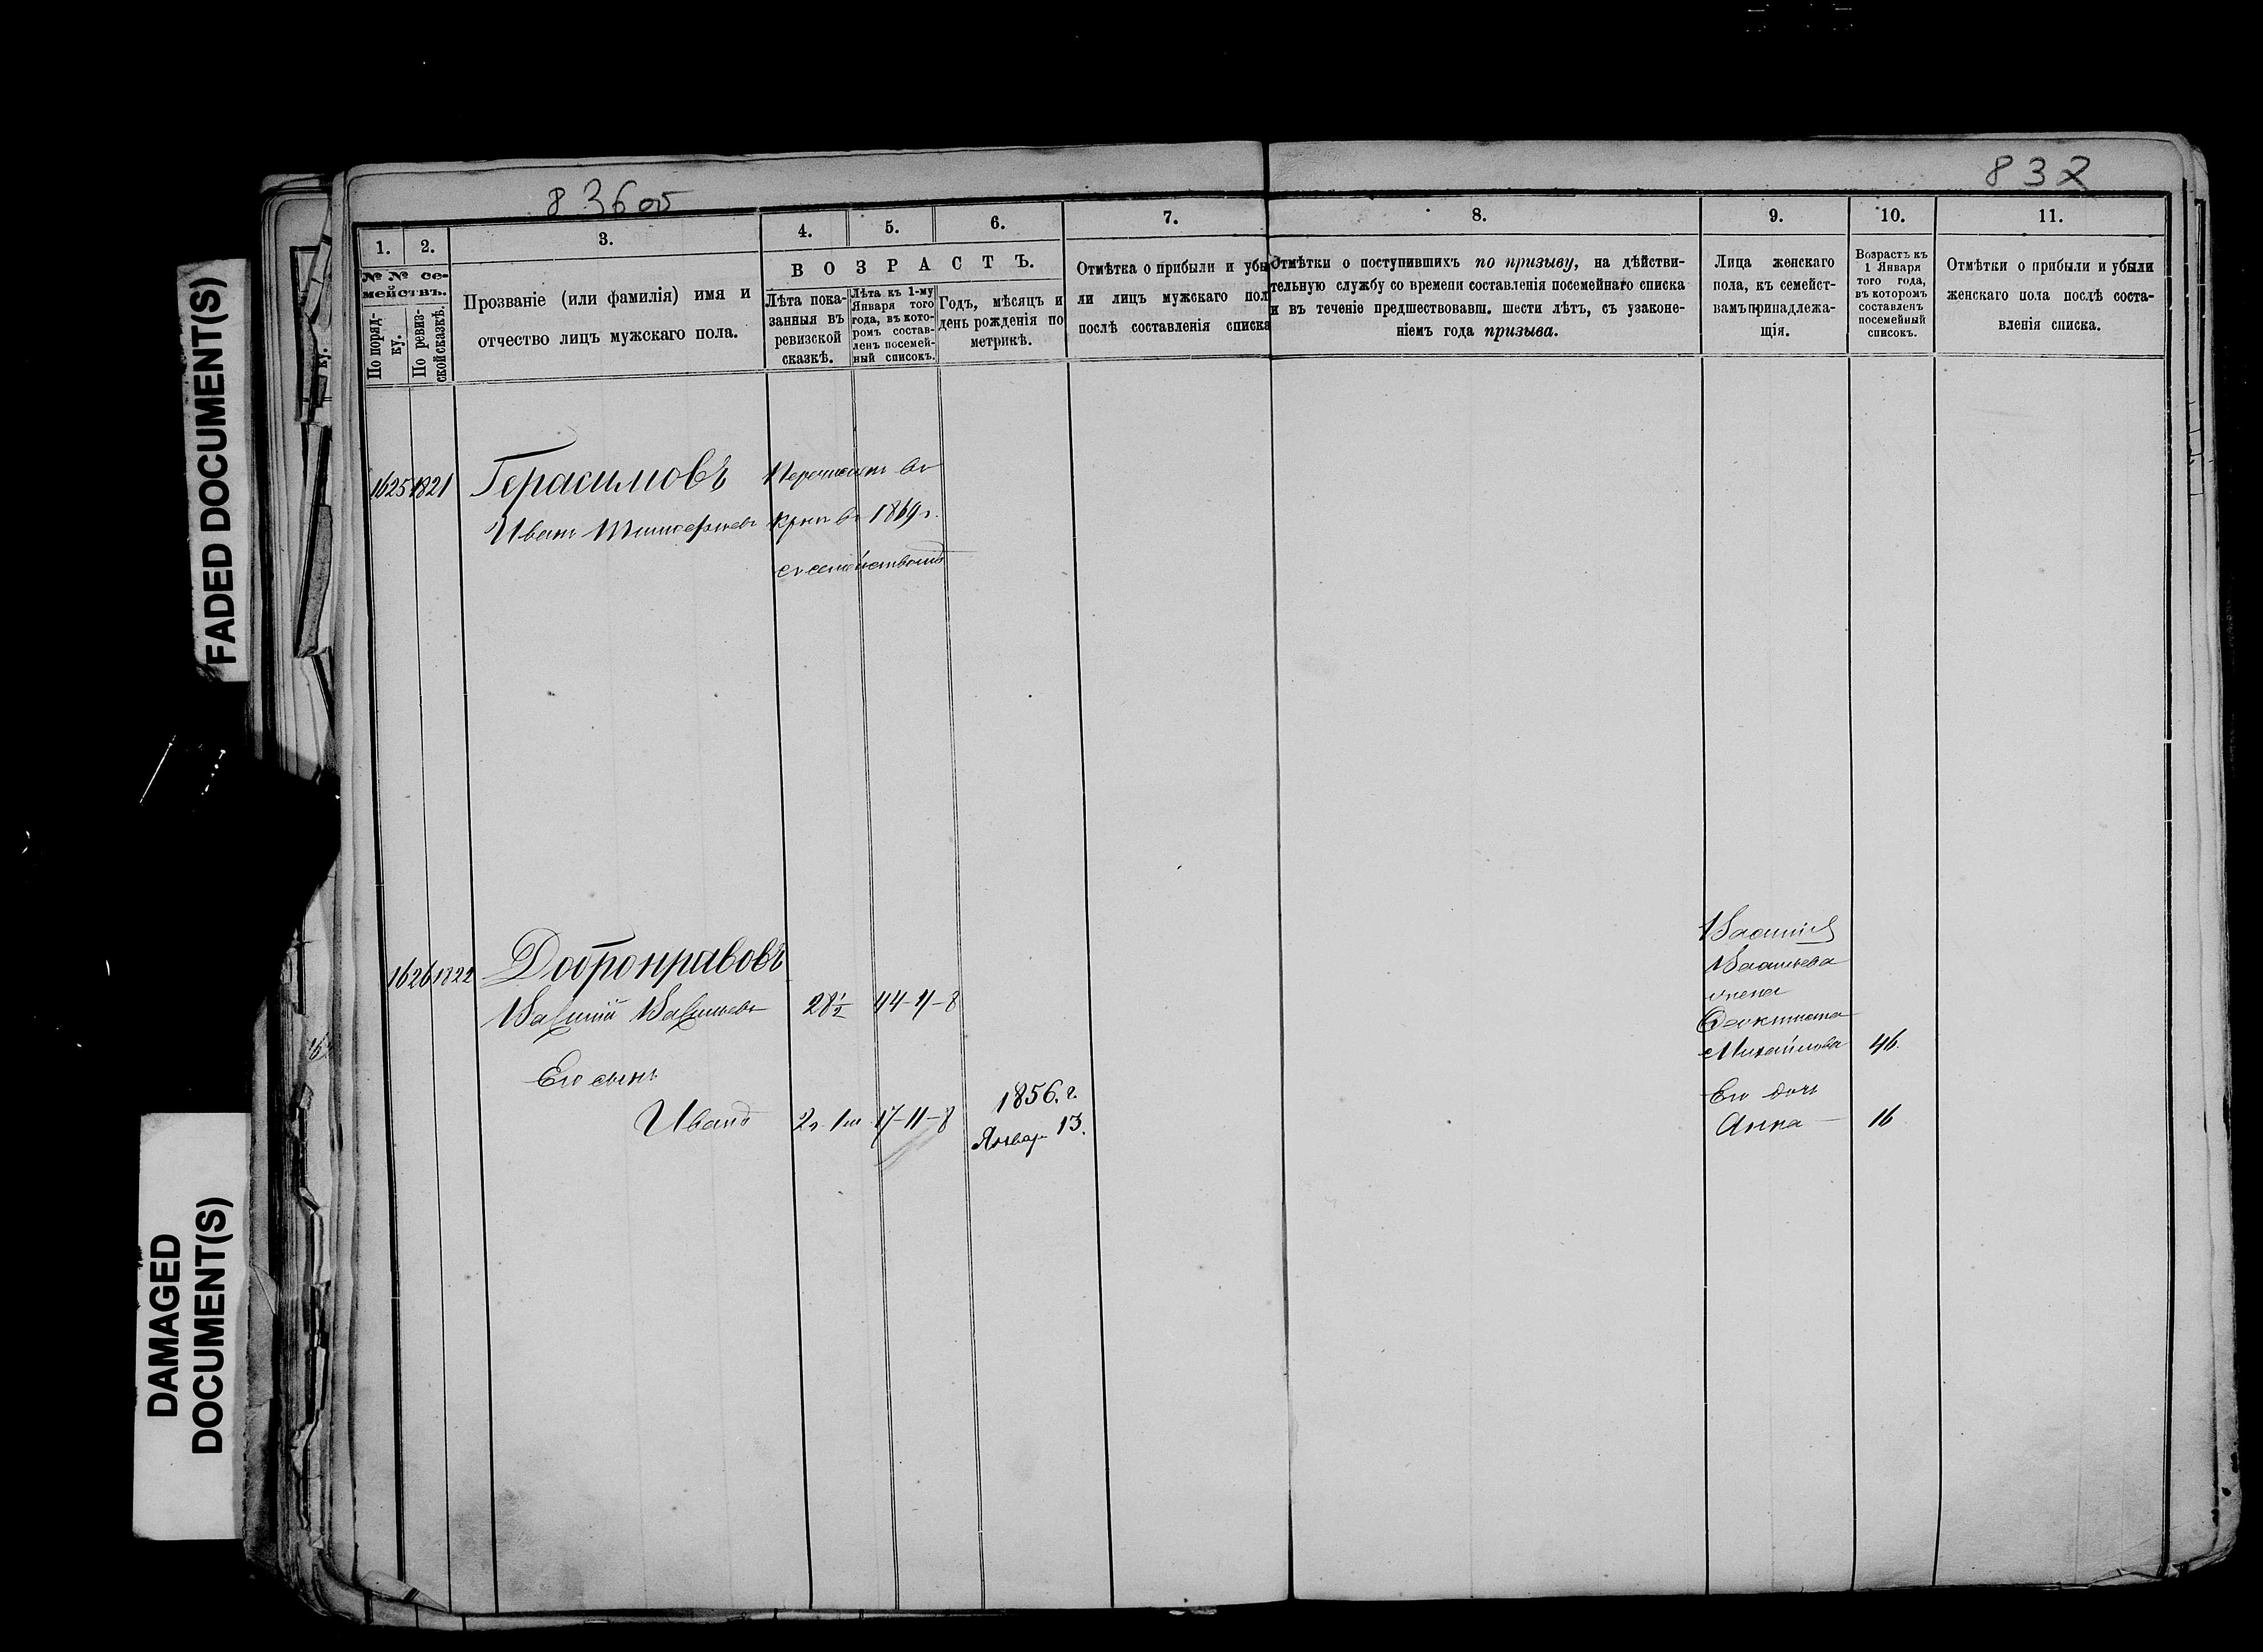 FADED DOCUMENT(S)
DAMAGED
DOCUMENT(S)
836об
832
1.
2.
3.
4.
5.
6.
7.
8.
9.
10.
11.
№ № се-
мействъ.
По поряд-
ку.
По ревиз-
ской сказкѣ.
Прозваніе (или фамилія) имя и
отчество лицъ мужскаго пола.
ВОЗРАСТЪ.
Лѣта пока-
занныя въ
ревизской
сказкѣ.
Лѣта къ 1-му
Января того
года, въ кото-
ромъ состав-
ленъ посемей-
ный списокъ.
Годъ, мѣсяцъ и
день рожденія по
метрикѣ.
Отмѣтка о прибыли и убы
ли лицъ мужскаго пол
послѣ составленія списка
Отмѣтки о поступившихъ по призыву, на дѣйстви-
тельную службу со времени составленія посемейнаго списка
и въ теченіе предшествовавш. шести лѣтъ, съ узаконе-
ніемъ года призыва.
Лица женскаго
пола, къ семейст-
вамъ принадлежа-
щія.
Возрастъ къ
1 Января
того года,
въ которомъ
составленъ
посемейный
списокъ.
Отмѣтки о прибыли и убыли
женскаго пола послѣ соста-
вленія списка.
1625 1821 Герасимовъ
Иванъ 1869 г.
съ семействомъ
1626 1822 Добронравовъ
Василій Васильевъ 28½ 44-4-8
Его сынъ
Иванъ 2г. 1м. 17-11-8 1856. г.
Январ. 13.
Василія
Васильева
жена
Михайлова 46.
Его дочь
Анна 16